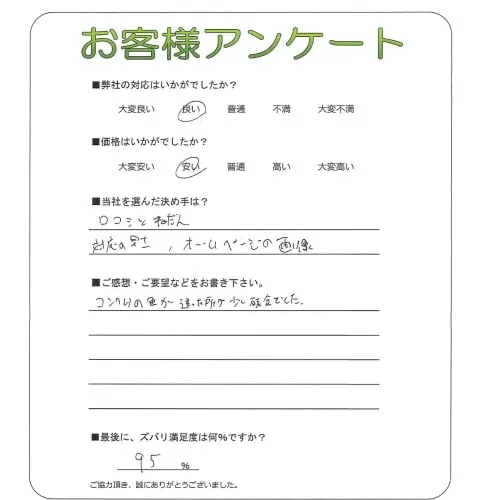 お客様アンケート
■弊社の対応はいかがでしたか？
大変良い 良い 普通 不満 大変不満
■価格はいかがでしたか？
大変安い 安い 普通 高い 大変高い
■当社を選んだ決め手は？
口コミと ねだん
対応の早さ , ホームページの画像
■ご感想・ご要望などをお書き下さい。
の色が 違った所が 少し 残念でした.
■最後に、ズバリ満足度は何%ですか？
95 %
ご協力頂き、誠にありがとうございました。